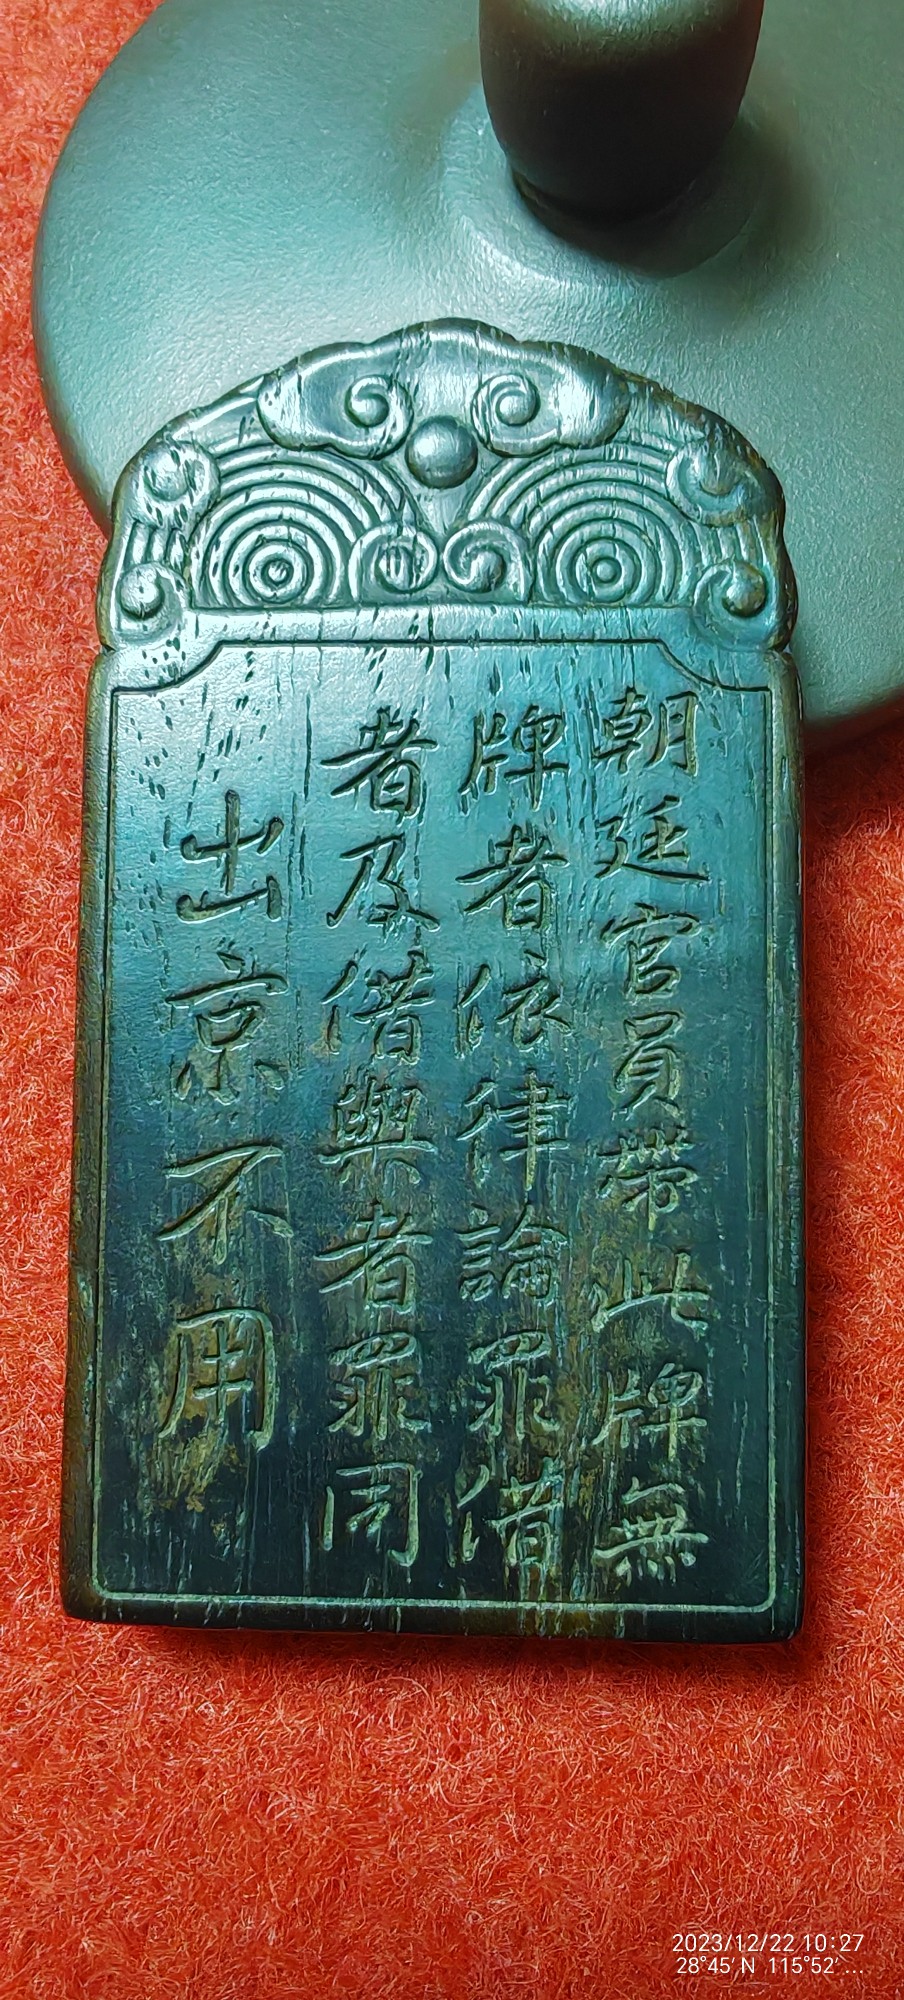 朝廷官員帶此牌無
牌者依律論罪借
者及借與者罪同
出京不用
2023/12/22 10:27
28°45′N 115°52′...